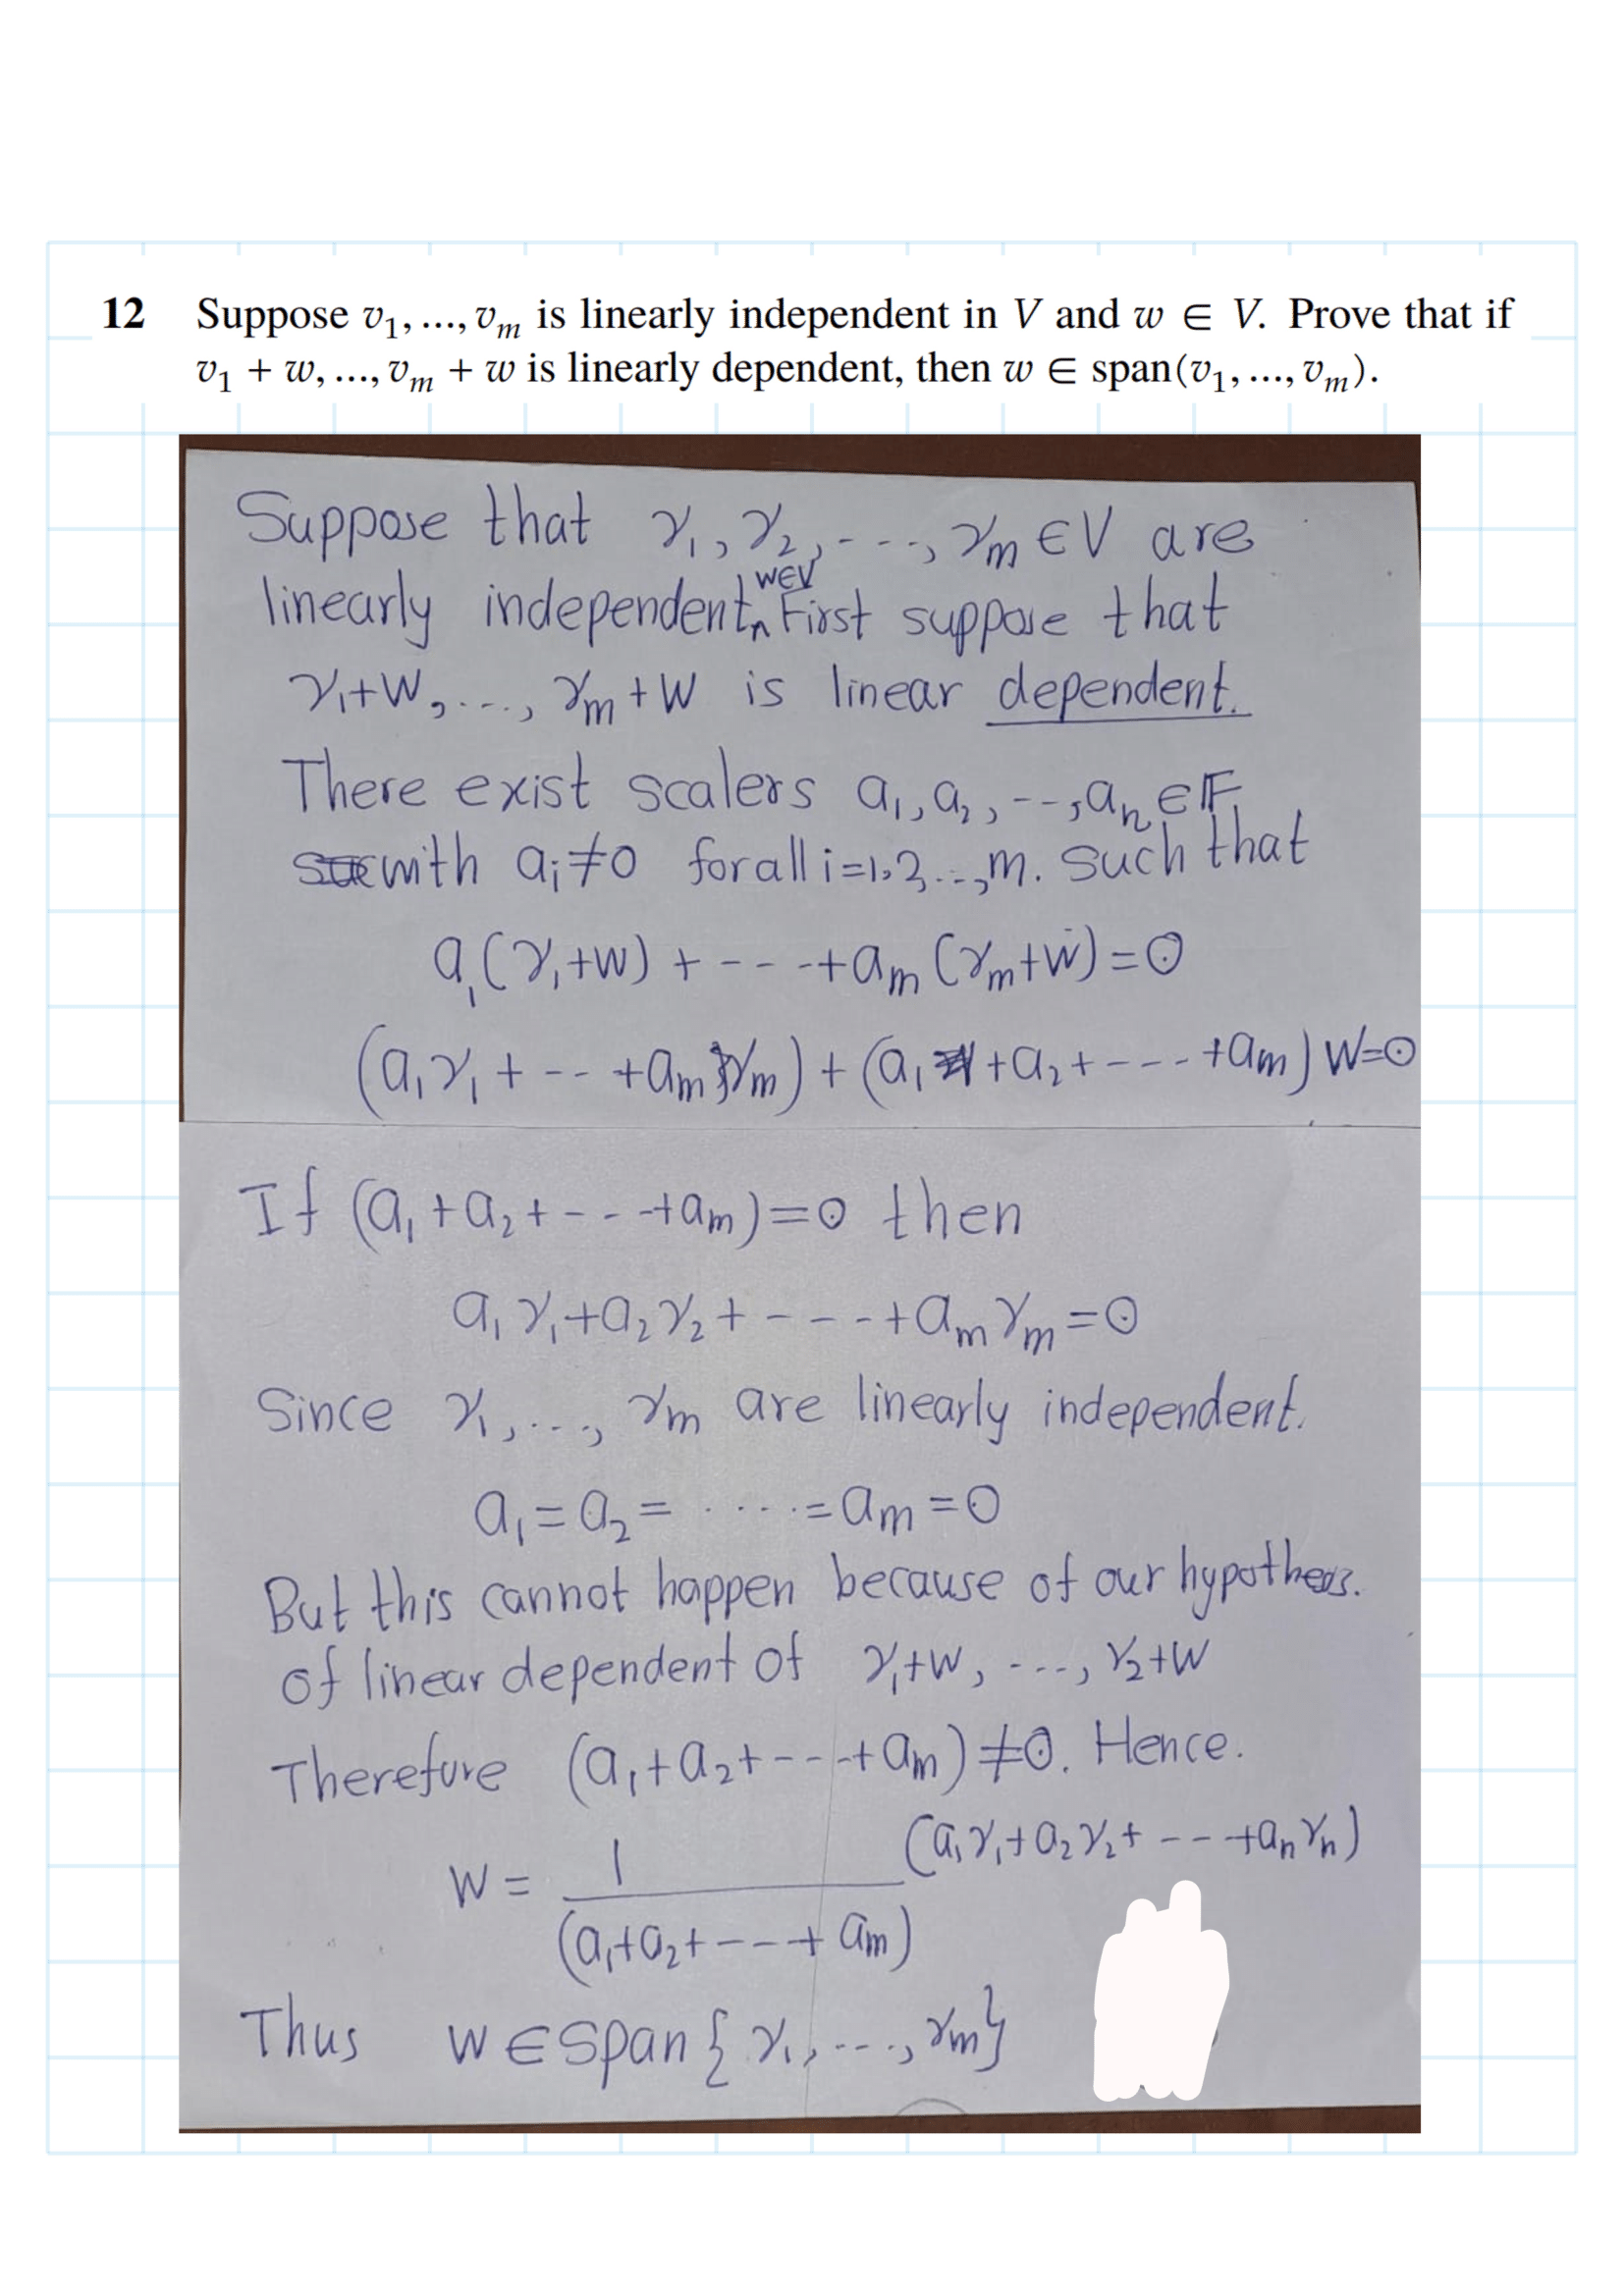 12 Suppose v₁, ..., vₘ is linearly independent in V and w ∈ V. Prove that if
v₁ + w, ..., vₘ + w is linearly dependent, then w ∈ span(v₁, ..., vₘ).
Suppose that v₁, v₂, ---, vₘ ∈ V are
w∈V
linearly independent, ∧ First suppose that
v₁+w, ...., vₘ+w is linear dependent.
There exist scalers a₁, a₂, --, aₙ ∈ 𝔽
with aᵢ≠0 for all i=1,2,..,m. such that
a₁(v₁+w) + --- +aₘ(vₘ+w)=0
(a₁v₁ + -- +aₘvₘ) + (a₁ +a₂+ ---- +aₘ) w=0
If (a₁ +a₂+ --- +aₘ)=0 then
a₁v₁+a₂v₂+ ---- +aₘvₘ=0
Since v₁, ..., vₘ are linearly independent.
a₁=a₂= .....=aₘ=0
But this cannot happen because of our hypothesis.
of linear dependent of v₁+w, ---, v₂+w
Therefore (a₁+a₂+----+aₘ)≠0. Hence.
w = 1/(a₁+a₂+---+aₘ) (a₁v₁+a₂v₂+ --- +aₙvₙ)
Thus w∈Span{v₁, ---, vₘ}